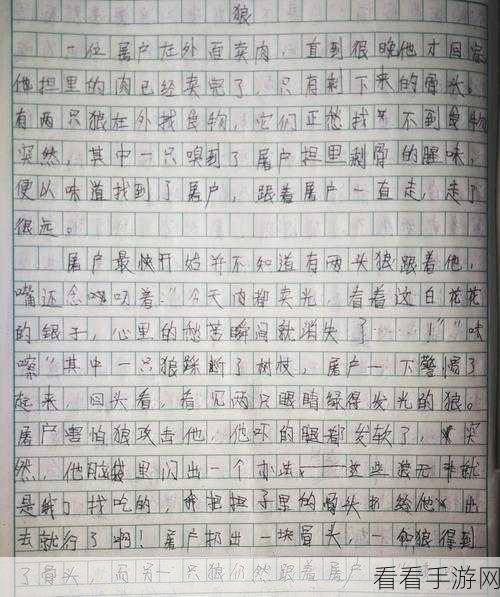 狼
一位屠户在外面卖肉，直到很晚他才回家
他担里的肉已经卖完了，只有剩下来的骨头。
有两只狼在外找食物，它们正愁找不到食物
突然，其中一只嗅到了屠户担里剩骨的腥味，
便以味道找到了屠户，跟着屠户一直走，走了
很远。
屠户最快开始并不知道有两头狼跟着他，
嘴还念叨着："今天肉都卖光，看着这白花花
的银子，心里的愁苦瞬间就消失了……！""咔
嚓"其中一只狼踩断了树枝，屠户一下警惕了
起来，回头看，看见两只眼睛绿得发光的狼。
屠户害怕狼攻击他，他吓的腿都发软了，突
然，他脑袋里闪出一个办法：——这些狼无非就
是找吃的，我把担子里的骨头扔给他 出
去就行了啊！屠户扔出一块骨头，一 狼得到
了骨头，而另一只狼仍然跟着屠户
看看手游网
www.kkyx.com